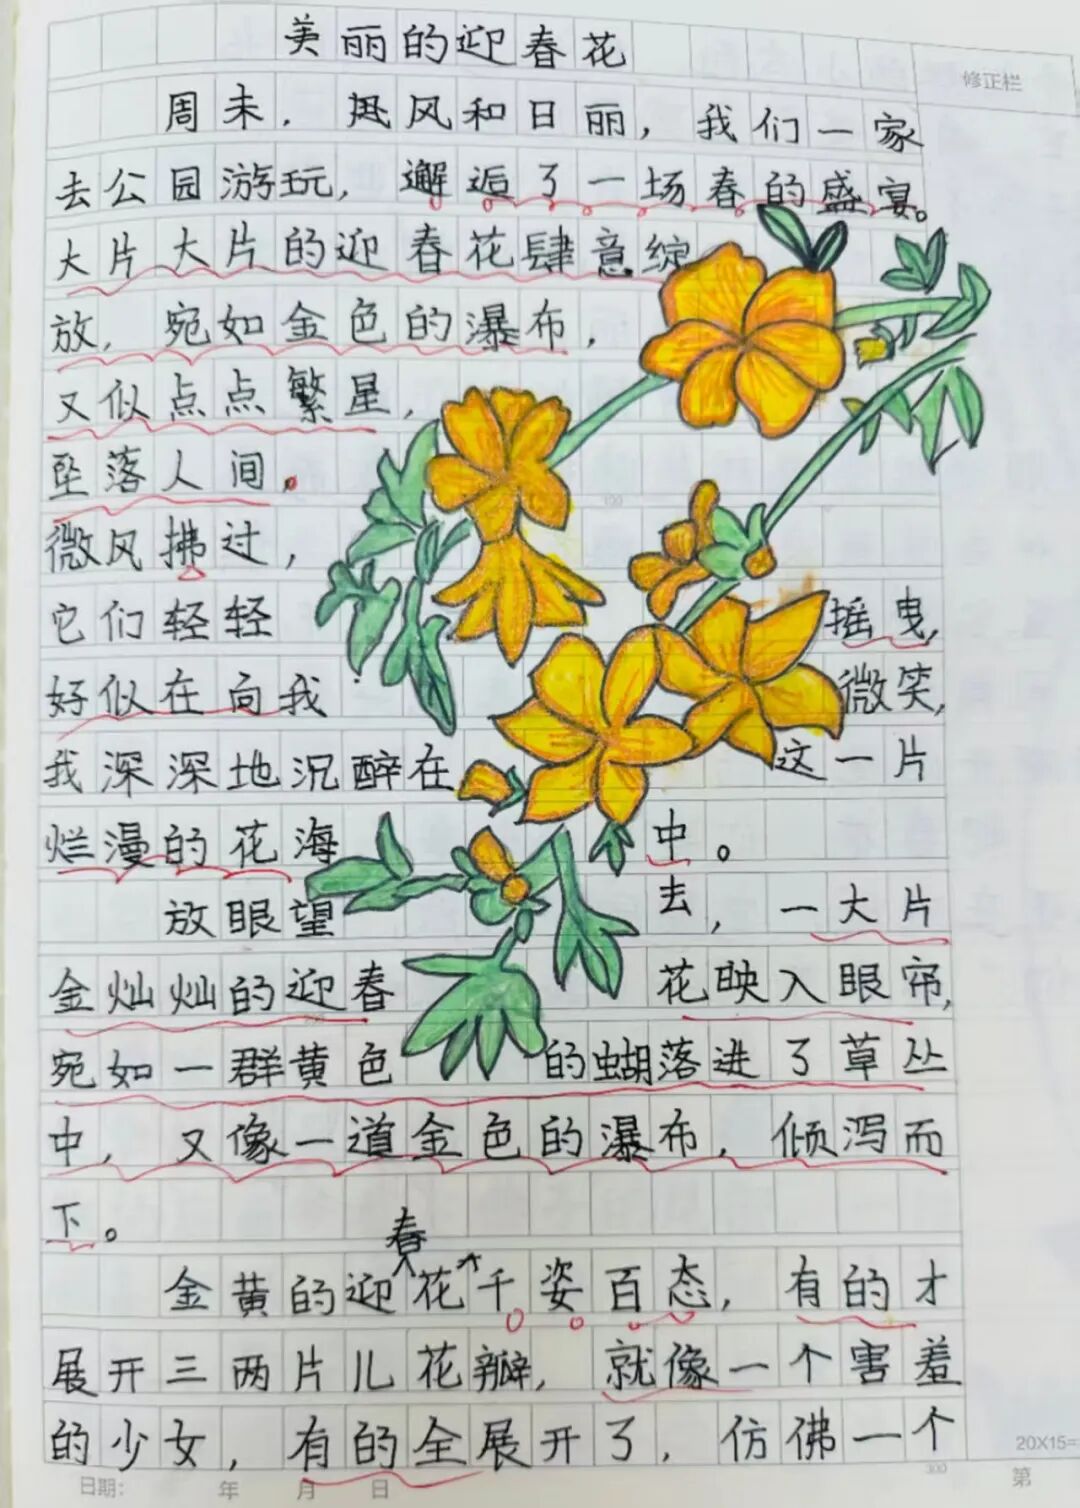 美丽的迎春花
修正栏
周未，风和日丽，我们一家
去公园游玩，邂逅了一场春的盛宴。
大片大片的迎春花肆意绽
放，宛如金色的瀑布，
又似点点繁星，
坠落人间。
微风拂过，
它们轻轻摇曳，
好似在向我微笑，
我深深地沉醉在这一片
烂漫的花海中。
放眼望去，一大片
金灿灿的迎春花映入眼帘，
宛如一群黄色的蝴落进了草丛
中，又像一道金色的瀑布，倾泻而
下。
金黄的迎春花千姿百态，有的才
展开三两片儿花瓣，就像一个害羞
的少女，有的全展开了，仿佛一个
20X15=
300
日期： 年 月 日
第